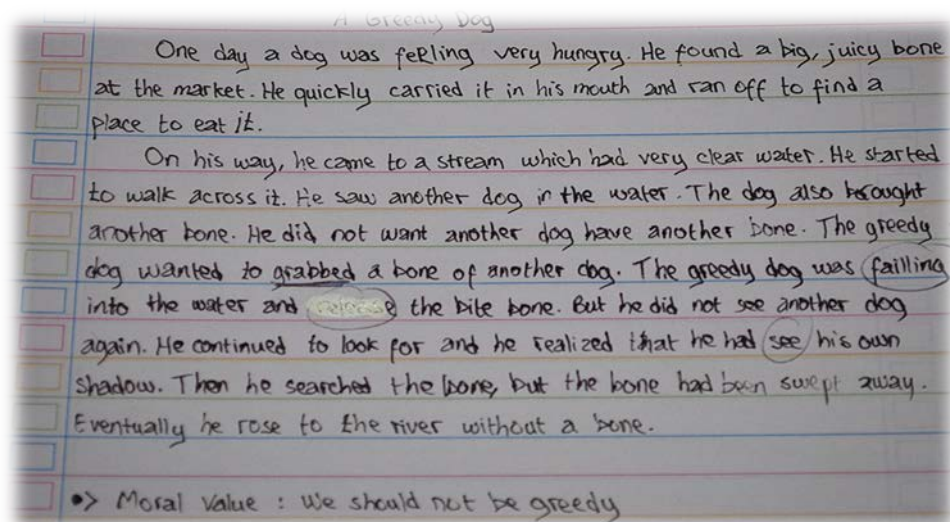 A Greedy Dog
One day a dog was feeling very hungry. He found a big, juicy bone
at the market. He quickly carried it in his mouth and ran off to find a
place to eat it.
On his way, he came to a stream which had very clear water. He started
to walk across it. He saw another dog in the water. The dog also brought
another bone. He did not want another dog have another bone. The greedy
dog wanted to grabbed a bone of another dog. The greedy dog was failling
into the water and release the bite bone. But he did not see another dog
again. He continued to look for and he realized that he had see his own
shadow. Then he searched the bone, but the bone had been swept away.
Eventually he rose to the river without a bone.
•> Moral Value : We should not be greedy